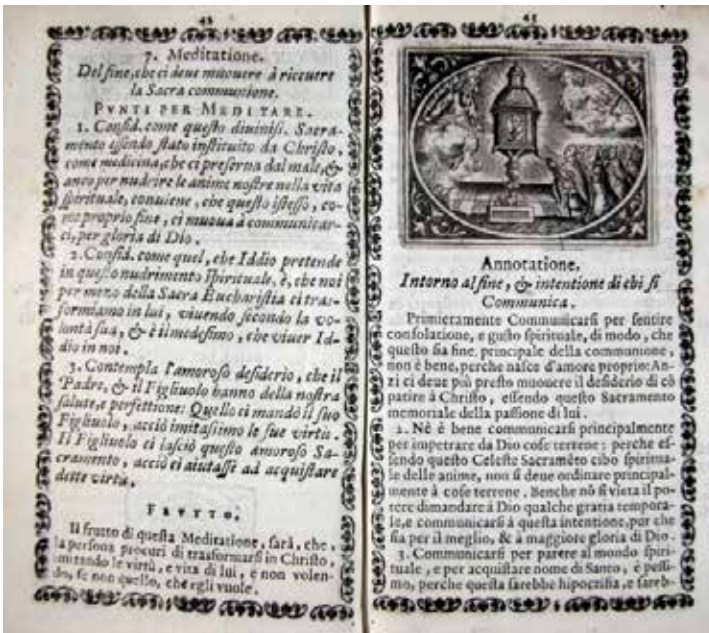 42
7. Meditatione.
Del fine, che ci deue muouere à riceuere
la Sacra communione.
PVNTI PER MEDITARE.
1. Consid. come questo diuiniss. Sacra-
mento essendo stato instituito da Christo,
come medicina, che ci preserua dal male, &
anco per nudrire le anime nostre nella vita
spirituale, conuiene, che questo istesso, co-
me proprio fine, ci muoua à communicar-
ci, per gloria di Dio.
2. Consid. come quel, che Iddio pretende
in questo nudrimento spirituale, è, che noi
per mezo della Sacra Eucharistia ci tras-
formiamo in lui, viuendo secondo la vo-
lontà sua, & è il medesimo, che viuer Id-
dio in noi.
3. Contempla l'amoroso desiderio, che il
Padre, & il Figliuolo hanno della nostra
salute, e perfettione: Quello ci mandò il suo
Figliuolo, acciò imitassimo le sue virtù.
Il Figliuolo ci lasciò questo amoroso Sa-
cramento, acciò ci aiutasse ad acquistare
dette virtù.
FRVTTO.
Il frutto di questa Meditatione, sarà, che
la persona procuri di trasformarsi in Christo,
imitando le virtù, e vita di lui, e non volen-
do, se non quello, che egli vuole.
Annotatione.
Intorno al fine, & intentione di chi si
Communica.
Primieramente Communicarsi per sentire
consolatione, e gusto spirituale, di modo, che
questo sia fine principale della communione,
non è bene, perche nasce d'amore proprio: An-
zi ci deue più presto muouere il desiderio di cō
patire à Christo, essendo questo Sacramento
memoriale della passione di lui.
2. Nè è bene communicarsi principalmente
per impetrare da Dio cose terrene: perche es-
sendo questo Celeste Sacramēto cibo spiritua-
le delle anime, non si deue ordinare principal-
mente à cose terrene. Benche nō si vieta il po-
tere dimandare à Dio qualche gratia tempora-
le, e communicarsi à questa intentione, pur che
sia per il meglio, & à maggiore gloria di Dio.
3. Communicarsi per parere al mondo spiri-
tuale, e per acquistare nome di Santo, è pessi-
mo, perche questa sarebbe hipocrisia, e sareb-